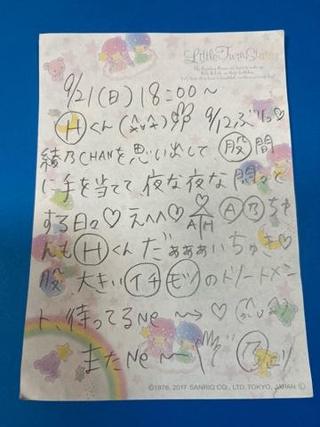 Little Twin Stars
9/21(日)18:00〜
Ⓗくん(^x^) 9/12ぶりっ♡
綾乃CHANを思い出して股間
に手を当てて、夜な夜な悶々と
する日々♡えへへ♡AH ⒶⓃちゃ
んもⒽくんだぁぁぁいちゅき♡
股 大きいイチモツのトリートメン
ト、待ってるNe〜→♡
またNe〜 より
©1976, 2017 SANRIO CO., LTD. TOKYO, JAPAN Ⓛ